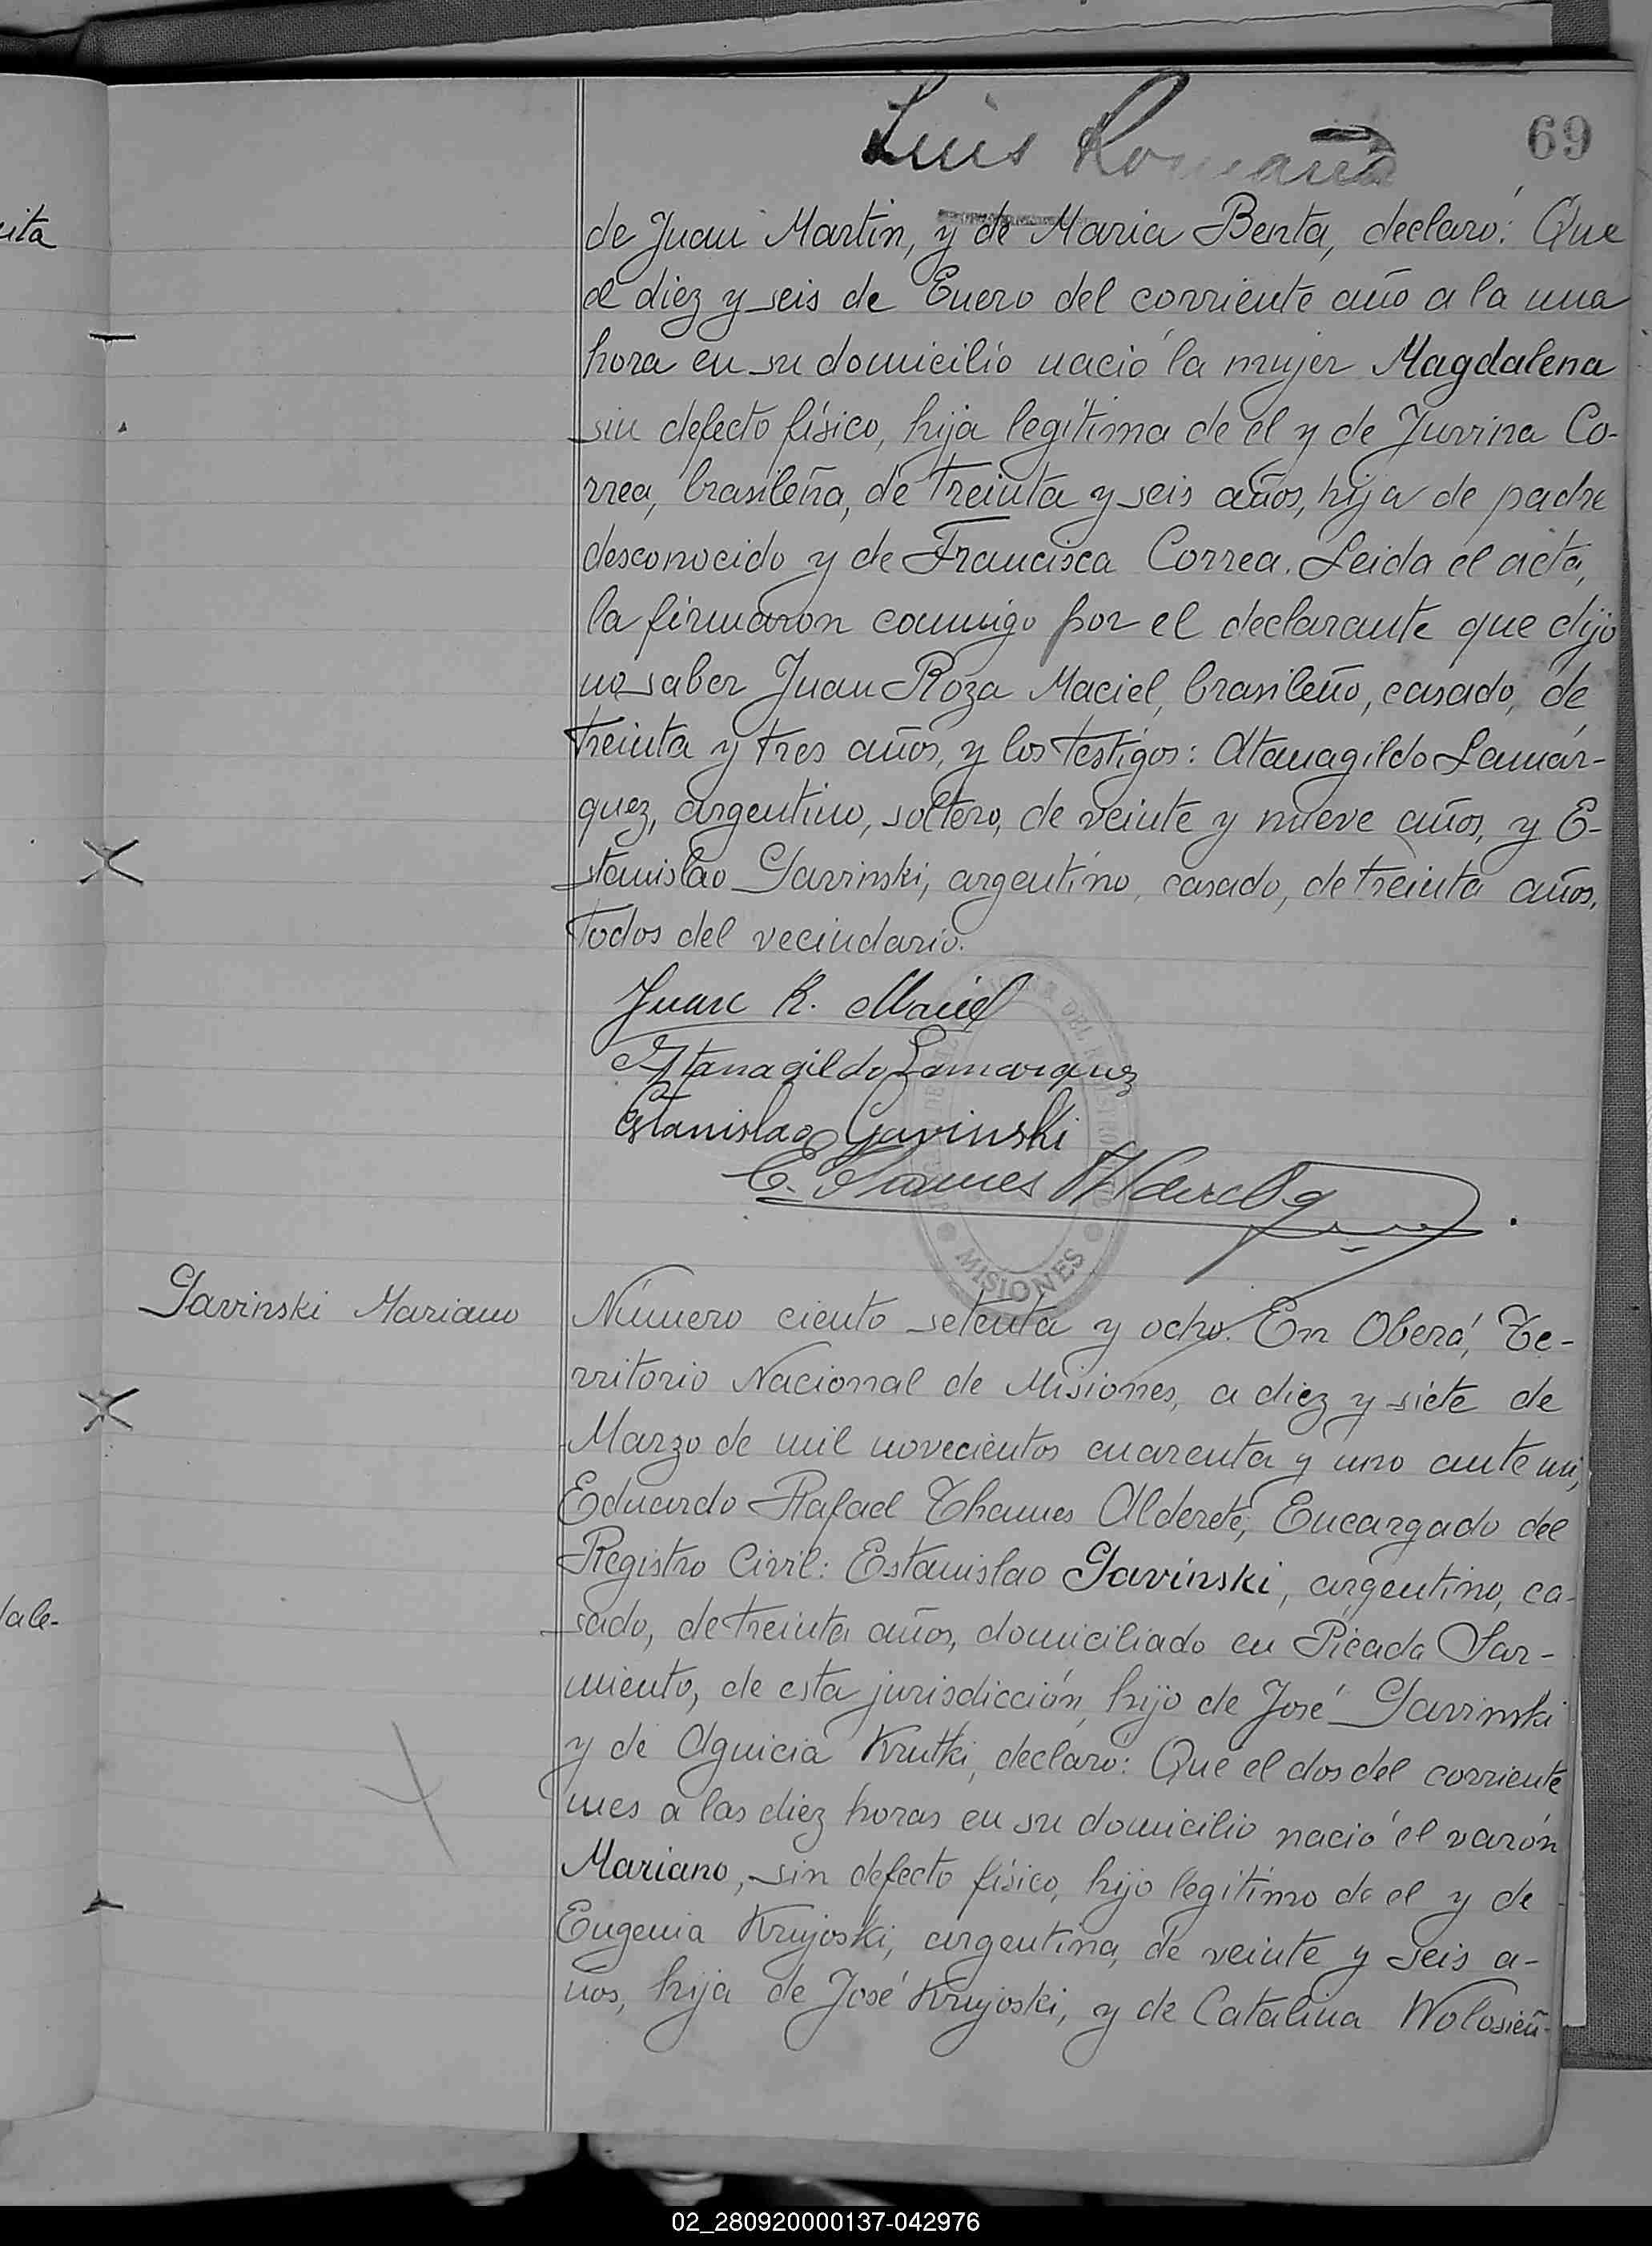 69
Luis Romaña
uita
de Juan Martin, y de Maria Benta, declaró: Que
el diez y seis de Enero del corriente año a la una
hora en su domicilio nació la mujer Magdalena
sin defecto físico, hija legítima de el y de Juvrina Co-
rrea, brasileña, de treinta y seis años, hija de padre
desconocido y de Francisca Correa. Leida el acta,
la firmaron conmigo por el declarante que dijo
no saber Juan Roza Maciel, brasileño, casado, de
treinta y tres años, y los testigos: Atanagildo Lamár-
quez, argentino, soltero, de veinte y nueve años, y E-
stanislao Gavinski, argentino, casado, de treinta años,
todos del vecindario.
Juan R. Maciel
Atanagildo Lamarquez
Estanislao Gavinski
E. Thames Alderete
MISIONES
Gavinski Mariano
Número ciento setenta y ocho. En Oberá, Te-
rritorio Nacional de Misiones, a diez y siete de
Marzo de mil novecientos cuarenta y uno ante mi,
Eduardo Rafael Thames Alderete, Encargado del
Registro Civil: Estanislao Gavinski, argentino, ca-
sado, de treinta años, domiciliado en Picada Sar-
miento, de esta jurisdicción, hijo de José Gavinski
y de Aguicia Krutki, declaró: Que el dos del corriente
mes a las diez horas en su domicilio nació el varón
Mariano, sin defecto físico, hijo legítimo de el y de
Eugenia Krujoski, argentina, de veinte y seis a-
ños, hija de José Krujoski, y de Catalina Wolosieñ-
dale-
02_280920000137-042976